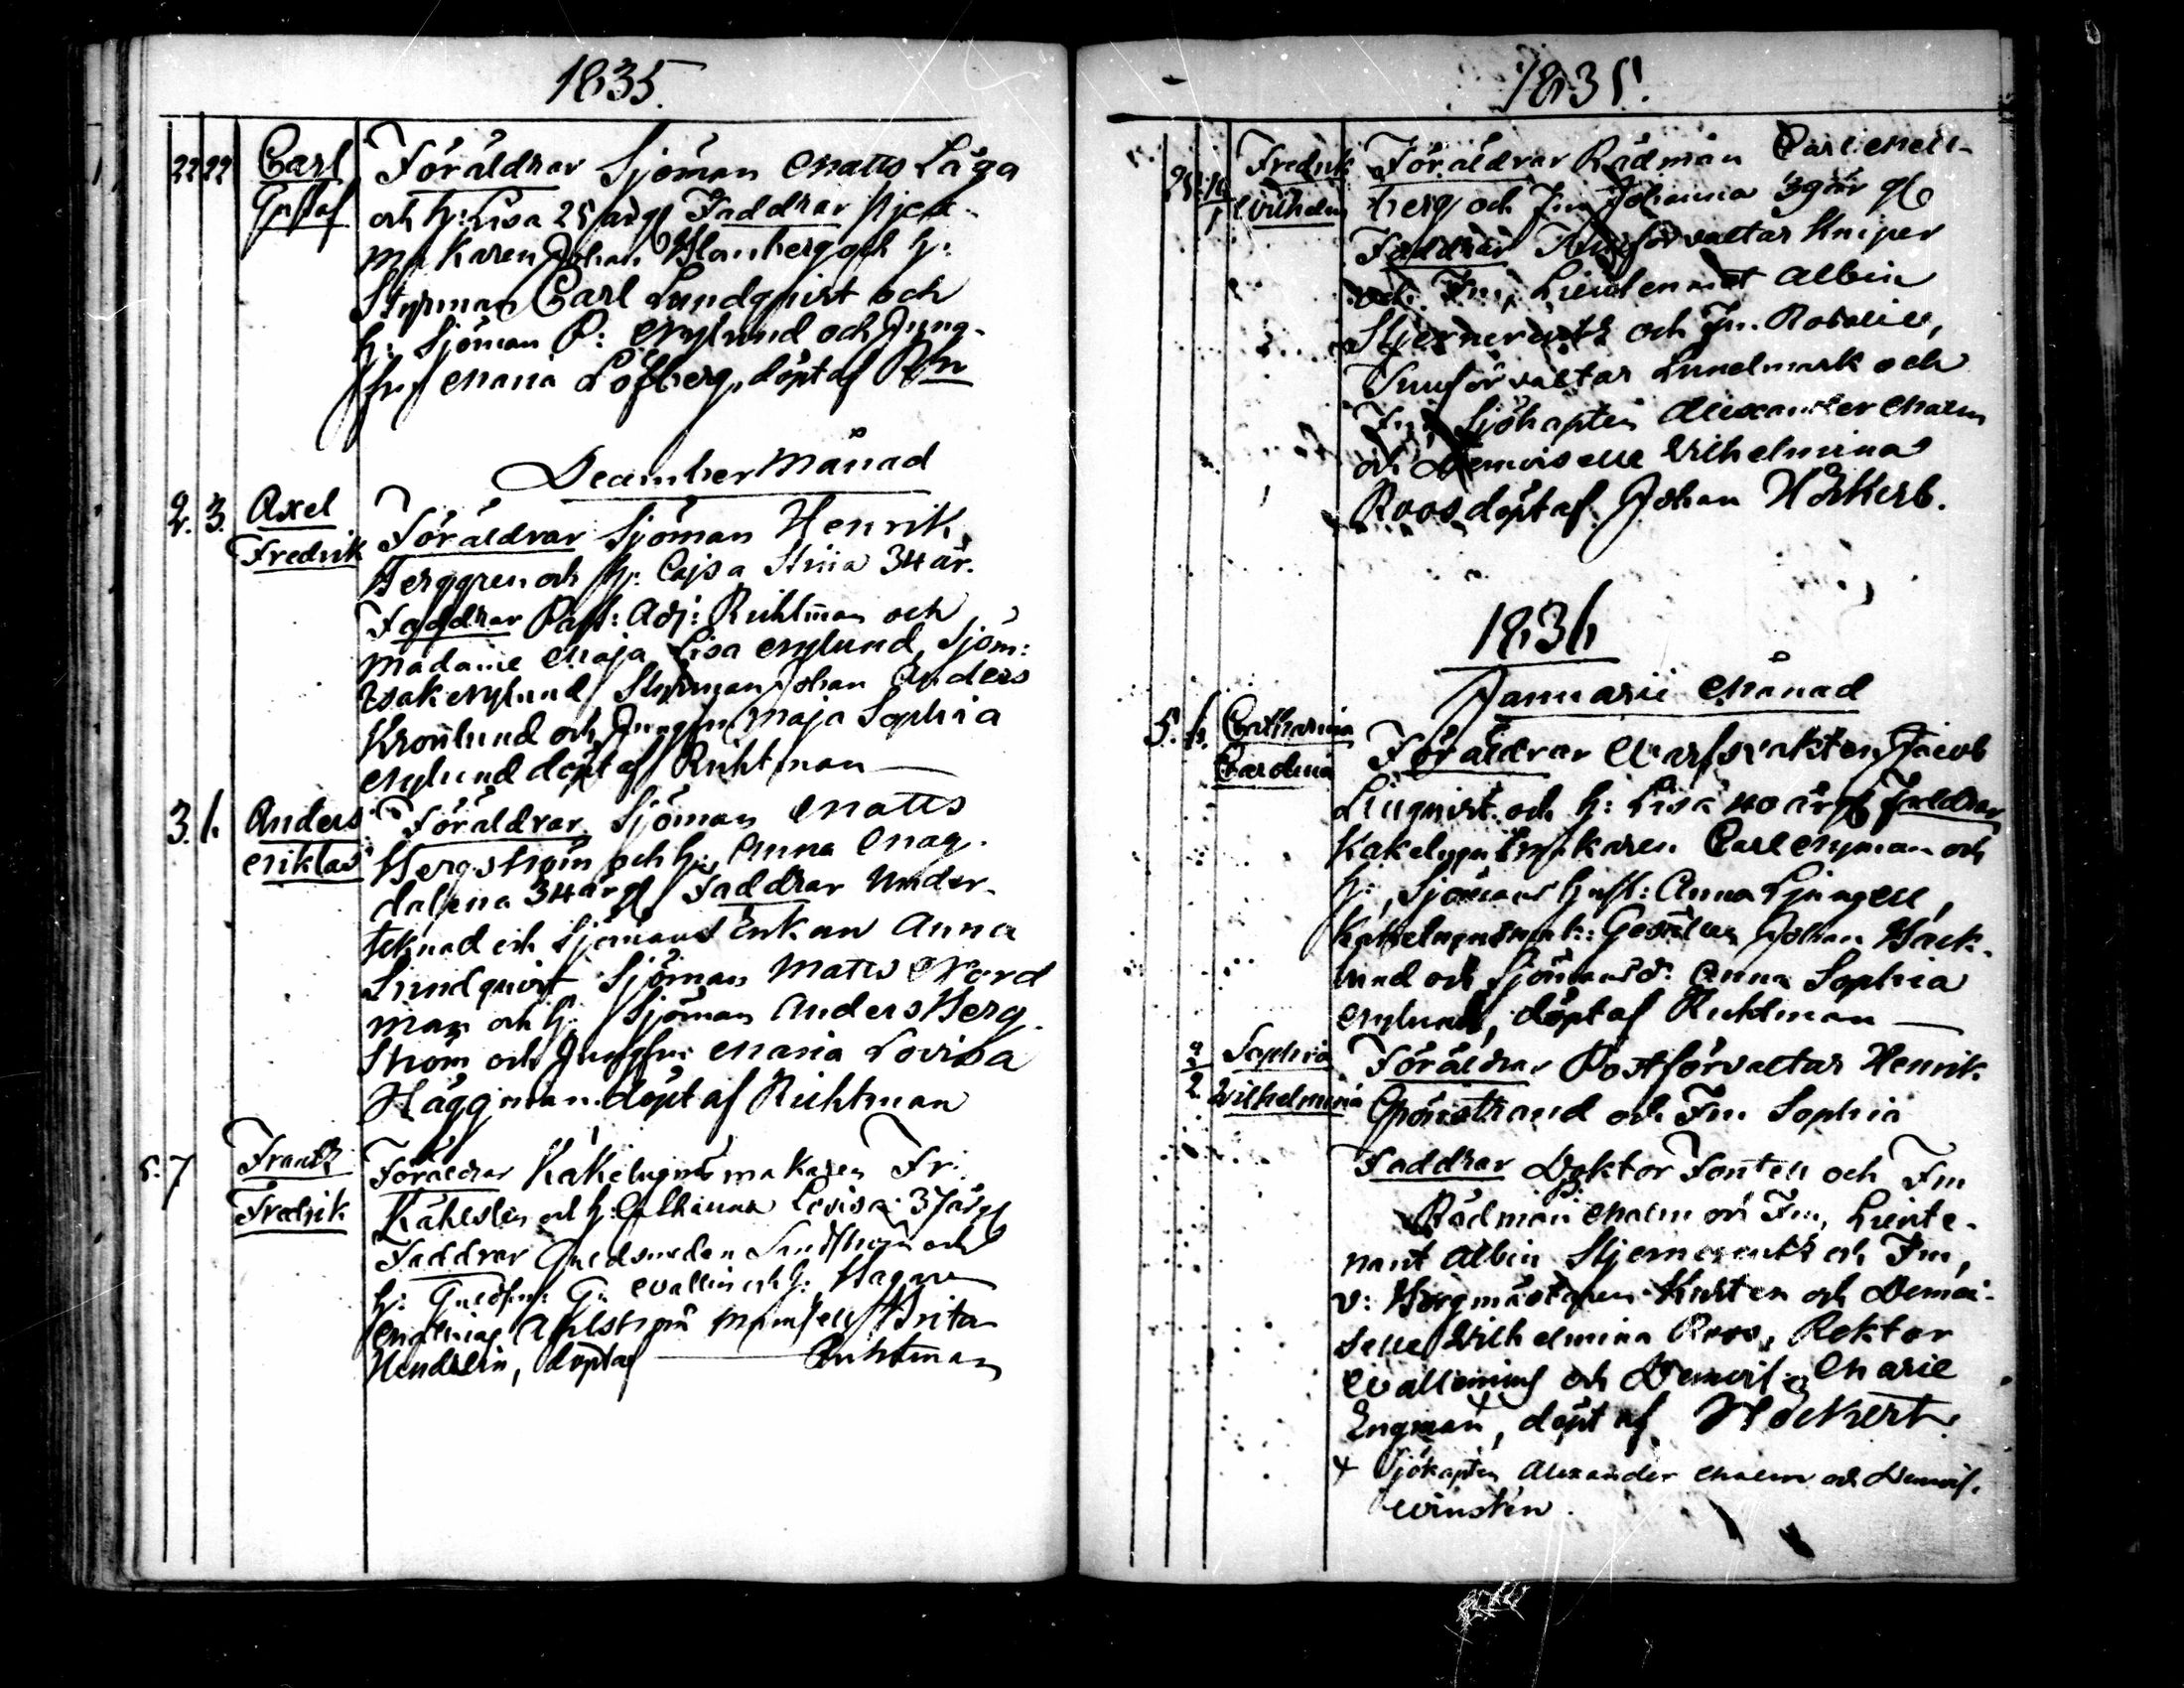 1835.
22 22 Carl Föräldrar Sjöman Matts Låga
Gustaf och h: Lisa 25 årg Faddrar
makaren Johan Blomberg och h:
Styrman Carl Lundqvist och
h: Sjöman P: Nylund och Jung-
fru Maria Löfberg, döpt af Rn
December Månad
2. 3. Axel Föräldrar Sjöman Henrik
Fredrik Berggren och h: Cajsa Stina 34 år.
Faddrar Past: Adj: Ruhtman och
Madame Maja Lisa Nylund, Sjöm:
Isak Nylund, Styrman Johan Anders
Kronlund och Jungfru Maja Sophia
Nylund döpt af Ruhtman
3. 6. Anders Föräldrar Sjöman Matts
Niklas Bergström och h: Anna Mag-
dalena 34 årg Faddrar Under-
teknad och Sjömans Enkan Anna
Lundqvist Sjöman Matts Nord
man och h: Sjöman Anders Berg-
ström och Jungfru Maria Lovisa
Häggman. döpt af Ruhtman
5. 7 Frantz Föräldrar Kakelugnsmakaren Fr:
Fredrik Kåhlström och h: Catharina Lovisa 37 årg
Faddrar Guldsmeden Lindström och
h: Guldsm: G: Wallin och h:
Ahlström Mamsell Brita
Hendelin, döpt af Ruhtman
1835.
Fredrik Föräldrar Rådman Carl Mell-
Wilhelm berg och Fru Johanna 39 år gl
Faddrar Förvaltar Kniper
och Fru, Lieutenant Albin
Stjernereutz och Fru Rosalie,
Förvaltar Lundmark och
Fru, Sjökapten Alexander Malm
och Demoiselle Wilhelmina
Roos döpt af Johan Höckert.
1836
Januarii Månad
5. 6. Catharina Föräldrar Warfsvakten Jacob
Carolina Linqvist och h: Lisa 40 årgl Faddrar
Kakelugnsmakaren Carl Nyman och
h:, Sjömans hust: Anna Ljungell,
Kakelugnsmak: Gesällen Johan Back-
lund och Sjömansd: Anna Sophia
Nylund, döpt af Ruhtman
2 Sophia Föräldrar Postförvaltar Henrik
Wilhelmina Grönstrand och Fru Sophia
Faddrar Doktor Fontell och Fru
Rådman Malm och Fru, Lieute-
nant Albin Stjernereutz och Fru,
v: Borgmästaren Kurtén och Demoi-
selle Wilhelmina Roos, Rektor
Wallenius och Demois. + Marie
Engman, döpt af Höckert.
+ Sjökapten Alexander Malm och Demois.
Winstén.